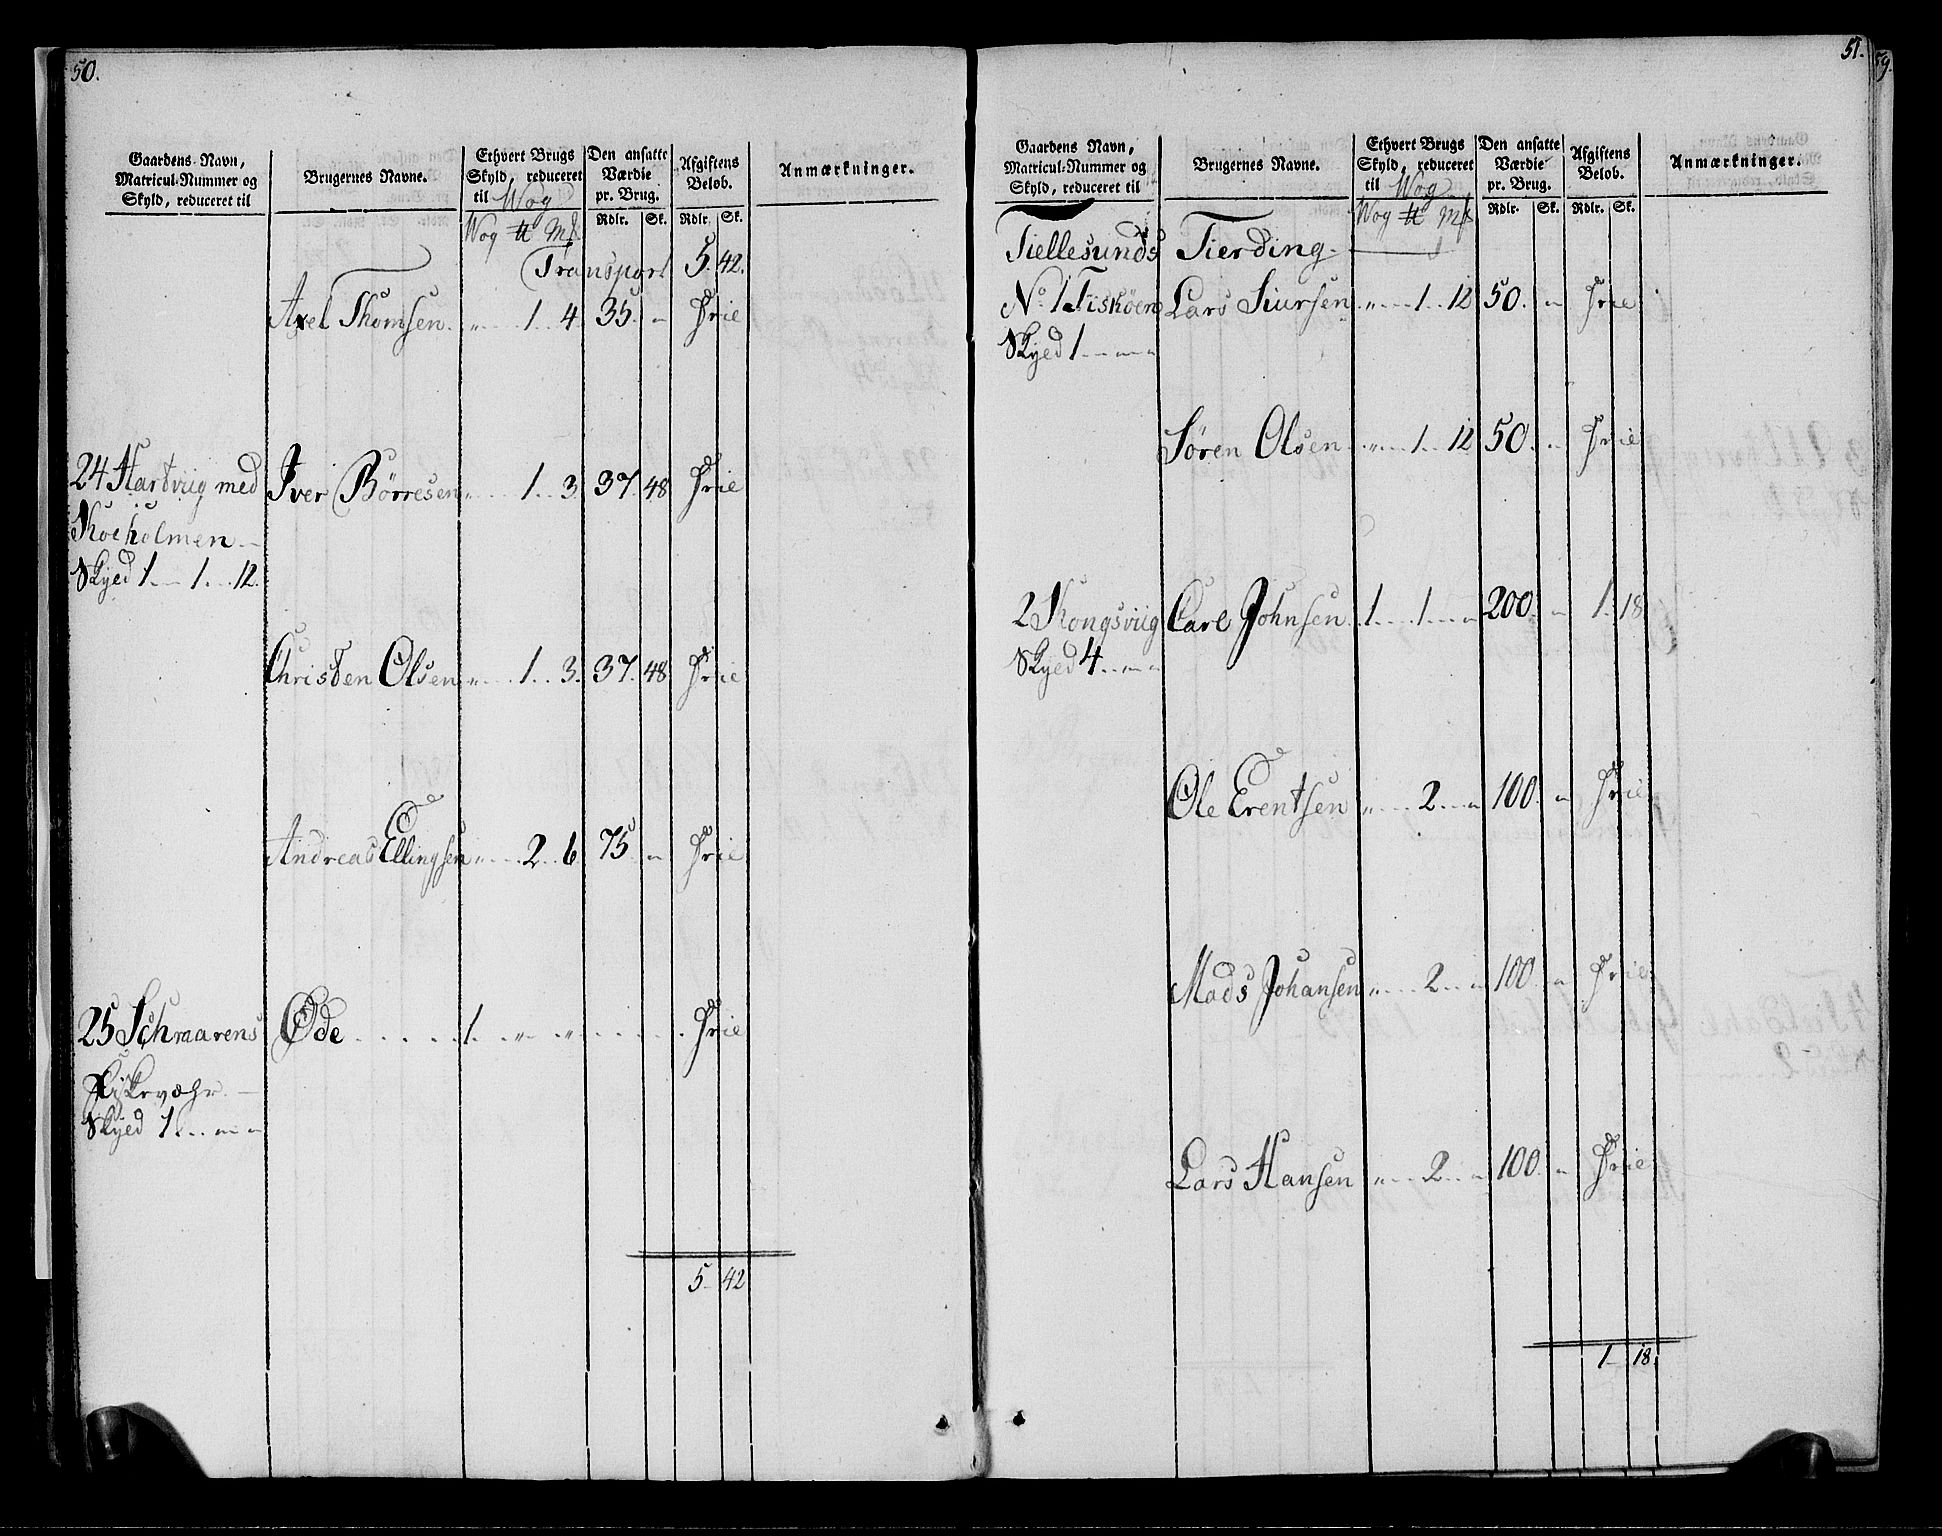 50.
Gaardens Navn, Matricul-Nummer og Skyld, reduceret til | Brugernes Navne. | Ethvert Brugs Skyld, reduceret til Wog | Den ansatte Værdie pr. Brug. | Afgiftens Beløb. | Anmærkninger.
Wog ℔ Mk | Rdlr. Sk. | Rdlr. Sk.
Transport 5. 42.
Axel Thomsen. „ 1. 4. 35. „ Frie
24 Hartviig med Iver Börresen „ 1. 3. 37. 48 Frie
Kocholmen
Skyed 1 1. 12.
Christen Olsen „ 1. 3. 37. 48 Frie
Andreas Ellingsen „ 2. 6. 75. „ Frie
25 Schraarens Øde 1. „ „ Frie
Fiskevæhr.
Skyed 1. „ „
5. 42
51.
59.
Gaardens Navn, Matricul-Nummer og Skyld, reduceret til | Brugernes Navne. | Ethvert Brugs Skyld, reduceret til Wog | Den ansatte Værdie pr. Brug. | Afgiftens Beløb. | Anmærkninger.
Wog ℔ Mk | Rdlr. Sk. | Rdlr. Sk.
Tiellesunds Tierding
No. 1 Fiskøen Lars Siursen „ 1. 12 50. „ Frie
Skyed 1 „ „
Søren Olsen „ 1. 12 50. „ Frie
2 Kongsviig Carl Johnsen 1. 1. „ 200. „ 1. 18
Skyed 4 „ „
Ole Erentsen „ 2. „ 100. „ Frie
Mads Johansen „ 2. „ 100. „ Frie
Lars Hansen „ 2. „ 100. „ Frie
1. 18.